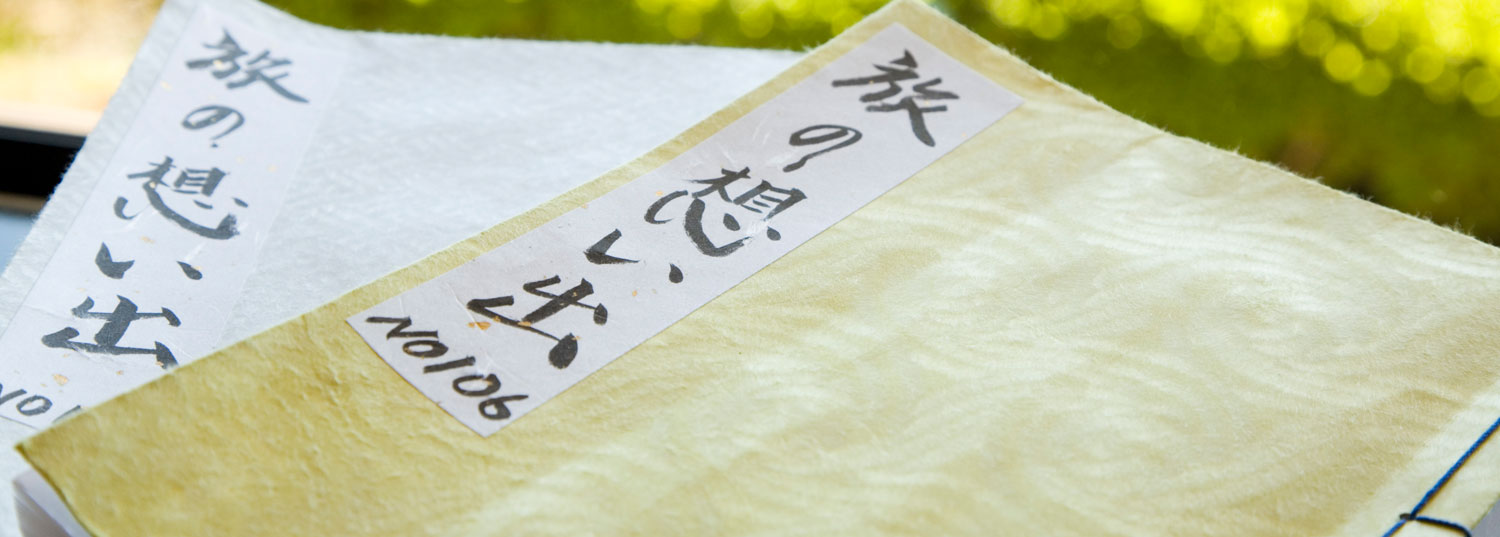 旅の想い出
No106
旅の想い出
No1